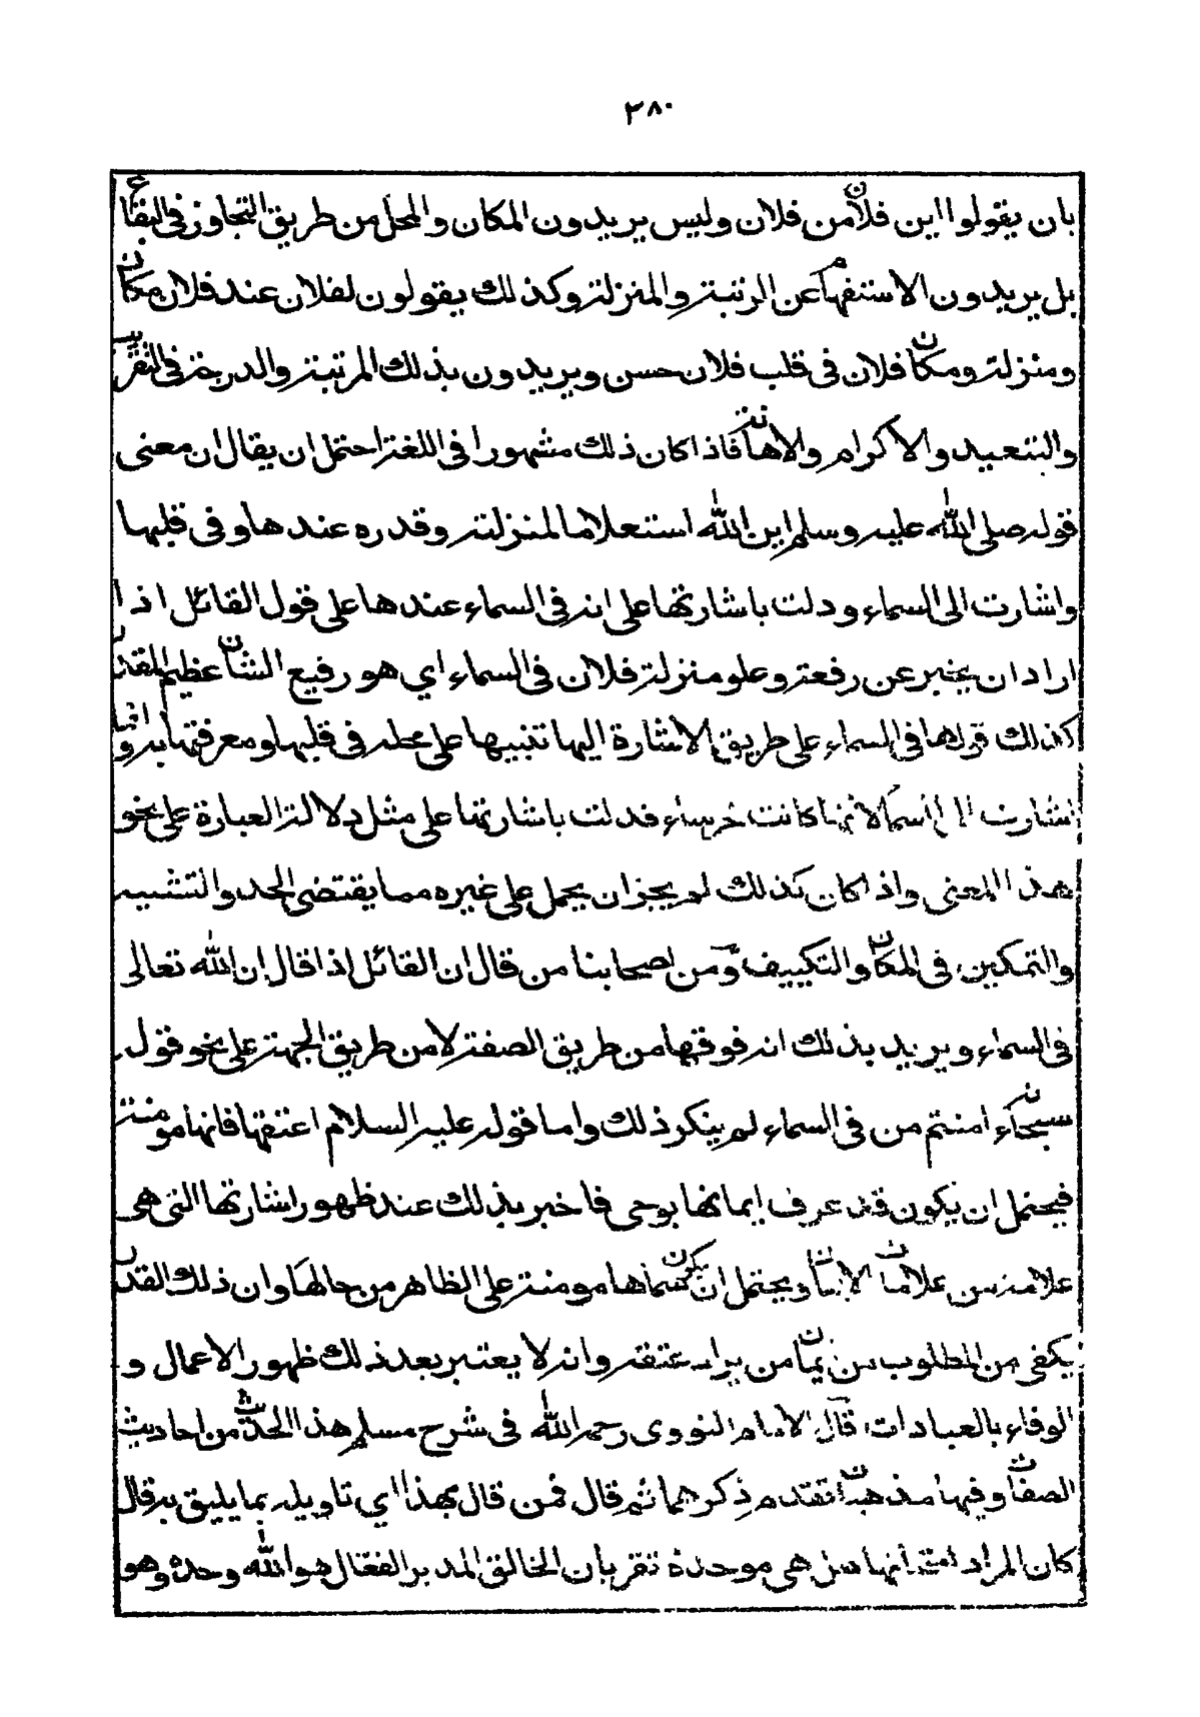 ٣٨٠
بان يقولوا اين فلان من فلان وليس يريدون المكان والمحل من طريق التجاوز في البقاع
بل يريدون الاستفهام عن الرتبة والمنزلة وكذلك يقولون لفلان عند فلان مكان
ومنزلة ومكان فلان في قلب فلان حسن ويريدون بذلك المرتبة والدرجة في التقريب
والتبعيد والاكرام والاهانة فاذا كان ذلك مشهورا في اللغة احتمل ان يقال ان معنى
قوله صلى الله عليه وسلم اين الله استعلاما لمنزلته وقدره عندها وفى قلبها
واشارت الى السماء ودلت باشارتها على انه في السماء عندها على قول القائل اذا
اراد ان يخبر عن رفعة وعلو منزلة فلان في السماء اي هو رفيع الشان عظيم القدر
كذلك قولها في السماء على طريق الاشارة اليها تنبيها على محله في قلبها ومعرفتها به وانما
اشارت الى السماء لانها كانت خرساء فدلت باشارتها على مثل دلالة العبارة على نحو
هذا المعنى واذا كان كذلك لم يجز ان يحمل على غيره مما يقتضى الحد والتشبيه
والتمكين في المكان والتكييف ومن اصحابنا من قال ان القائل اذا قال ان الله تعالى
في السماء ويريد بذلك انه فوقها من طريق الصفة لا من طريق الجهة على نحو قوله
سبحانه ءامنتم من في السماء لم ينكر ذلك واما قوله عليه السلام اعتقها فانها مومنة
فيحتمل ان يكون قد عرف إيمانها بوحى فاخبر بذلك عند ظهور اشارتها التى هى
علامة من علامات الايمان ويحتمل ان يكون سماها مومنة على الظاهر من حالها وان ذلك القدر
يكفى من المطلوب من ايمان من يراد عتقه وانه لا يعتبر بعد ذلك ظهور الاعمال و
الوفاء بالعبادات قال الامام النووى رحمه الله في شرح مسلم هذا الحديث من احاديث
الصفات وفيها مذهبان تقدم ذكرهما ثم قال فمن قال بهذا اي تاويله بما يليق به قال
كان المراد امتحانها هل هى موحدة تقر بان الخالق المدبر الفعال هو الله وحده وهو